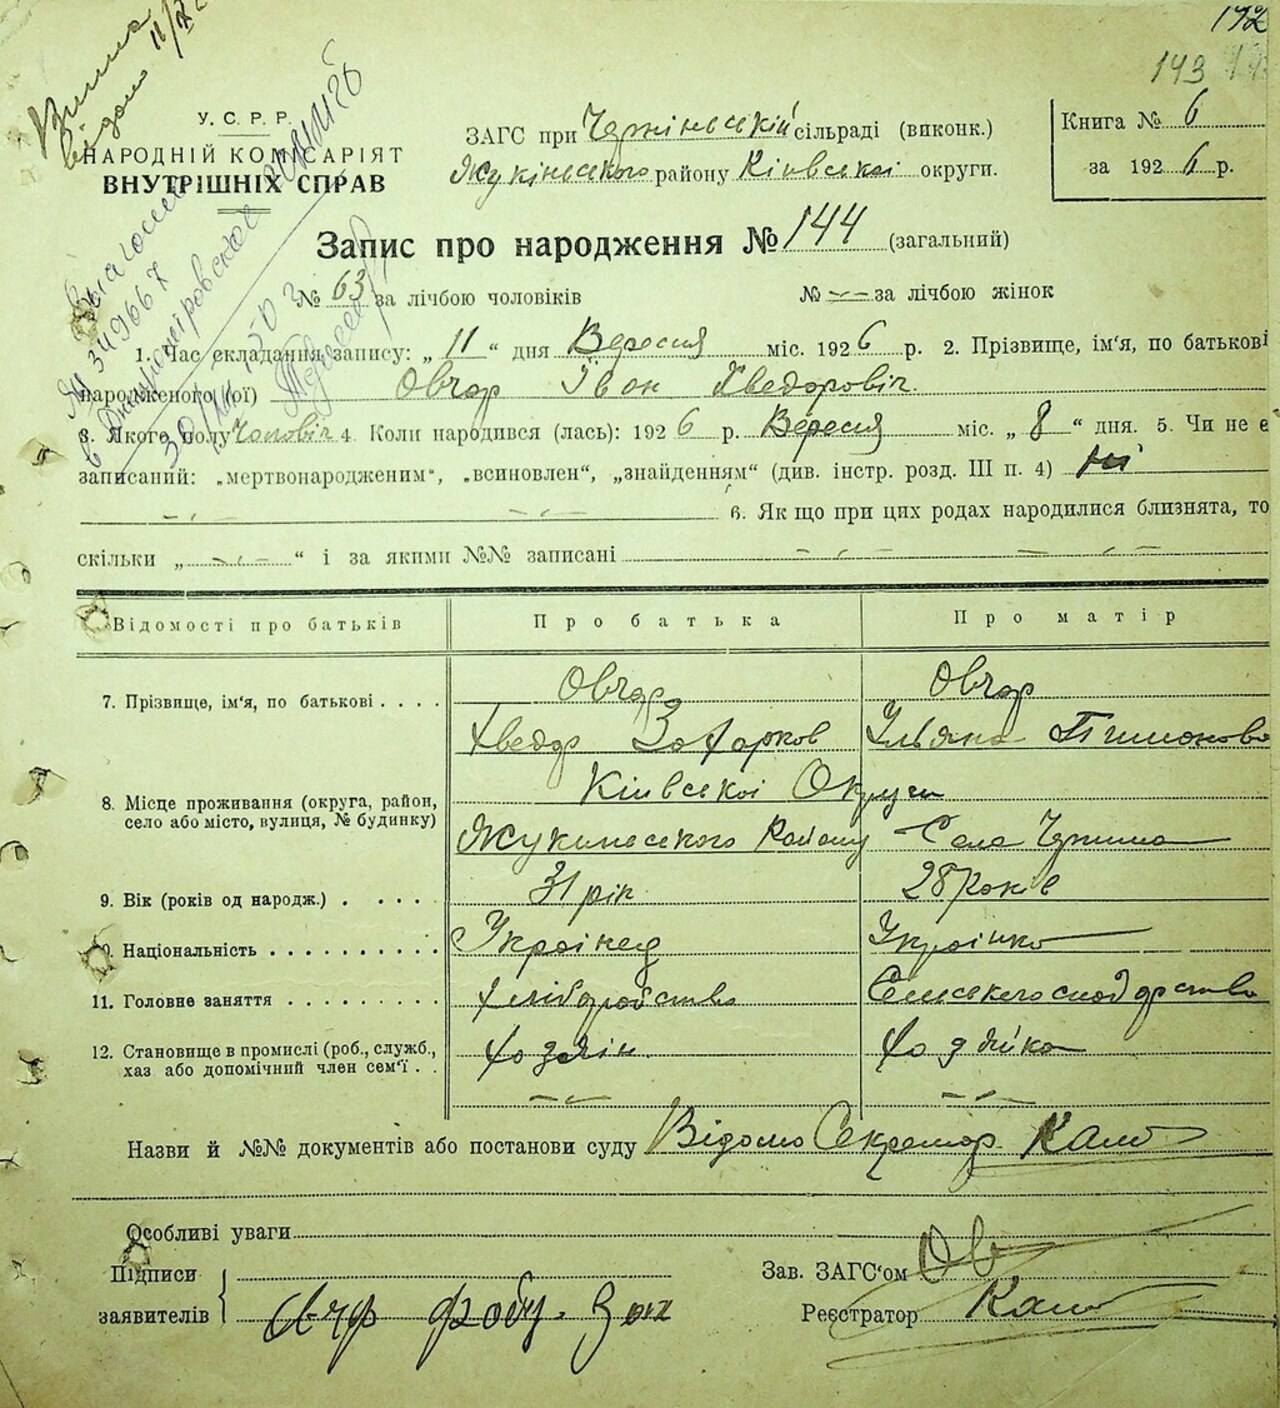 172
143
Книга № 6
за 1926 р.
У. С. Р. Р.
НАРОДНІЙ КОМІСАРІЯТ
ВНУТРІШНІХ СПРАВ
ЗАГС при Чернінській сільраді (виконк.)
Жукінського району Київської округи.
Запис про народження № 144 (загальний)
№ 63 за лічбою чоловіків № — — за лічбою жінок
1. Час складання запису: „ 11 “ дня Вересня міс. 1926 р. 2. Прізвище, ім'я, по батькові
народженого (ої) Овчар Іван Хведорович.
3. Якого полу Чоловіч 4. Коли народився (лась): 1926 р. Вересня міс. „ 8 “ дня. 5. Чи не є
записаний: „мертвонародженим“, „всиновлен“, „знайденням“ (див. інстр. розд. III п. 4) Ні
6. Як що при цих родах народилися близнята, то
скільки „ — “ і за якими №№ записані
Відомості про батьків Про батька Про матір
7. Прізвище, ім'я, по батькові . . . . Овчар Овчар
Хведор Захарков Ульяна
8. Місце проживання (округа, район,
село або місто, вулиця, № будинку)
Київської Округи
Жукинського Району Села Чернина
9. Вік (років од народж.) . . . . 31 рік 28 років
10. Національність . . . . . . . . . . Українец Українка
11. Головне заняття . . . . . . . . . Хліборобство
12. Становище в промислі (роб., служб.,
хаз або допомічний член сем'ї . .
Хозяїн Хозяйка
Назви й №№ документів або постанови суду Відомо Секретар
Особливі уваги
Підписи
заявителів
Зав. ЗАГС'ом Ов
Реєстратор